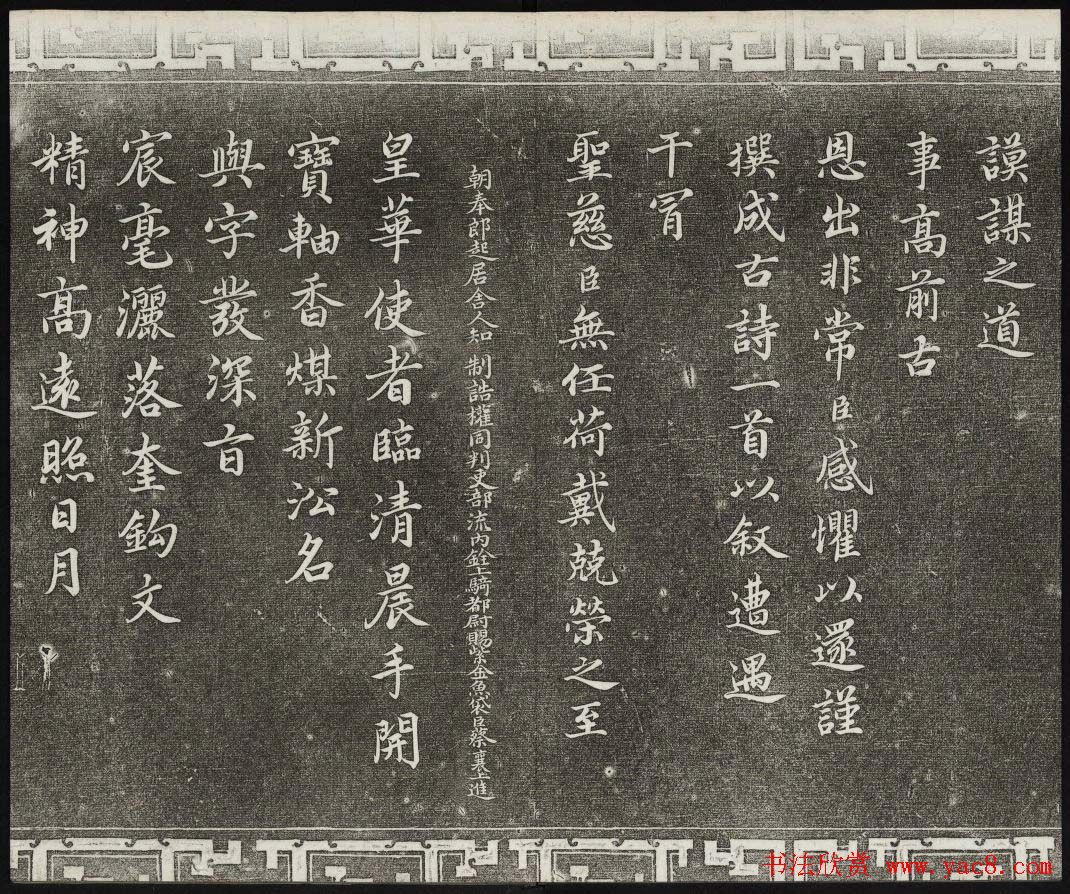 謨謀之道
事高前古
恩出非常臣感懼以還謹
撰成古詩一首以叙遭遇
干冒
聖慈臣無任荷戴兢榮之至
朝奉郎起居舍人知制誥權同判吏部流内銓上騎都尉賜紫金魚袋臣蔡襄上進
皇華使者臨清晨手開
寶軸香煤新沿名
與字發深旨
宸毫灑落奎鈎文
精神高遠照日月
书法欣赏 www.yac8.com